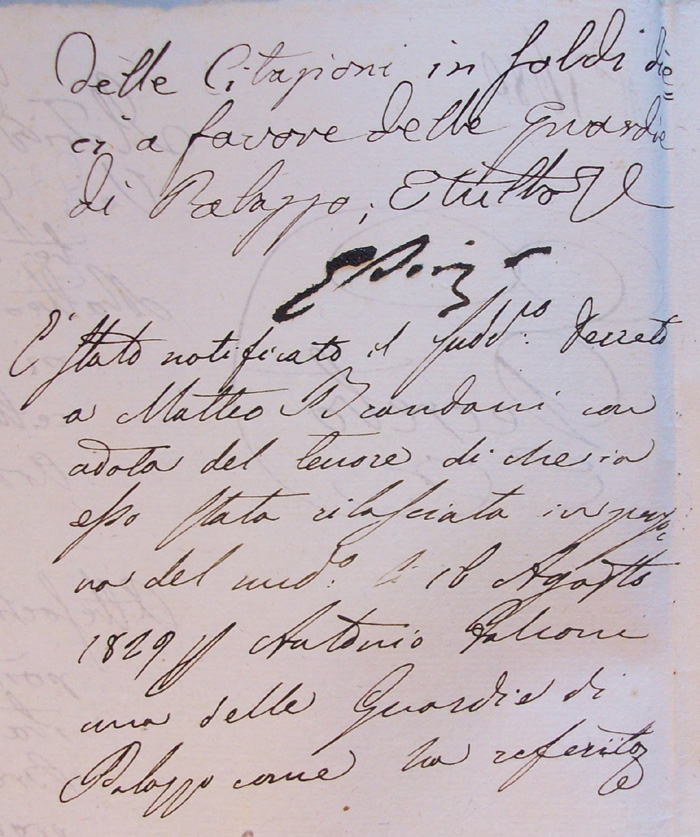 delle Citazioni in soldi die=
ci a favore delle Guardie
di Palazzo; E tutto
E' stato notificato il sudd.to Decreto
a Matteo Brandani con
del tenore di che in
esso stata rilasciata in perso=
na del med.o li 16 Agosto
1829 Antonio Falconi
una delle Guardie di
Palazzo come ha referito